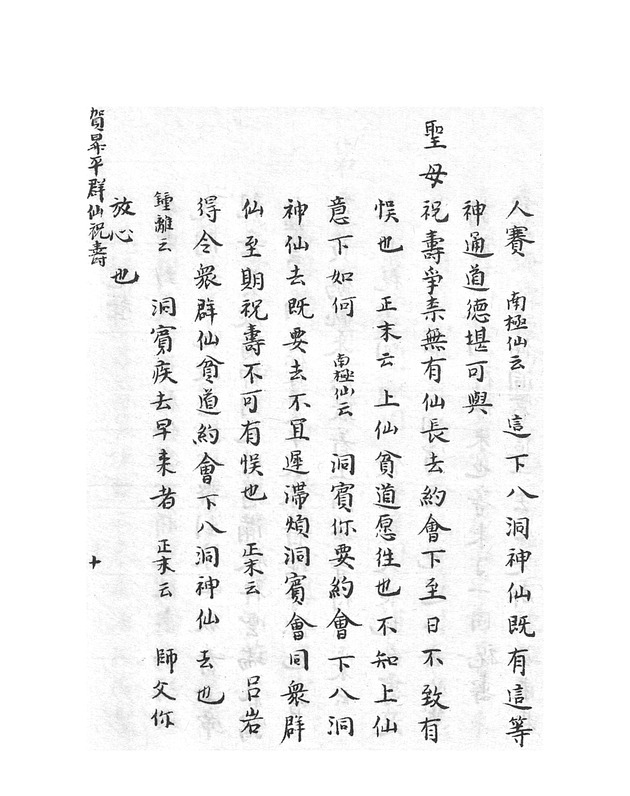 人賽　南極仙云　這下八洞神仙既有這等
神通道德堪可與
聖母祝壽爭柰無有仙長去約會下至日不致有
悮也　正末云　上仙貧道愿徃也不知上仙
意下如何　南極仙云　洞賔你要約會下八洞
神仙去既要去不冝遲滯煩洞賔會同衆群
仙至期祝壽不可有悮也　正末云　吕岩
得令衆群仙貧道約會下八洞神仙去也
鍾離云　洞賔疾去早来者　正末云　師父你
放心也
賀昇平群仙祝壽　十